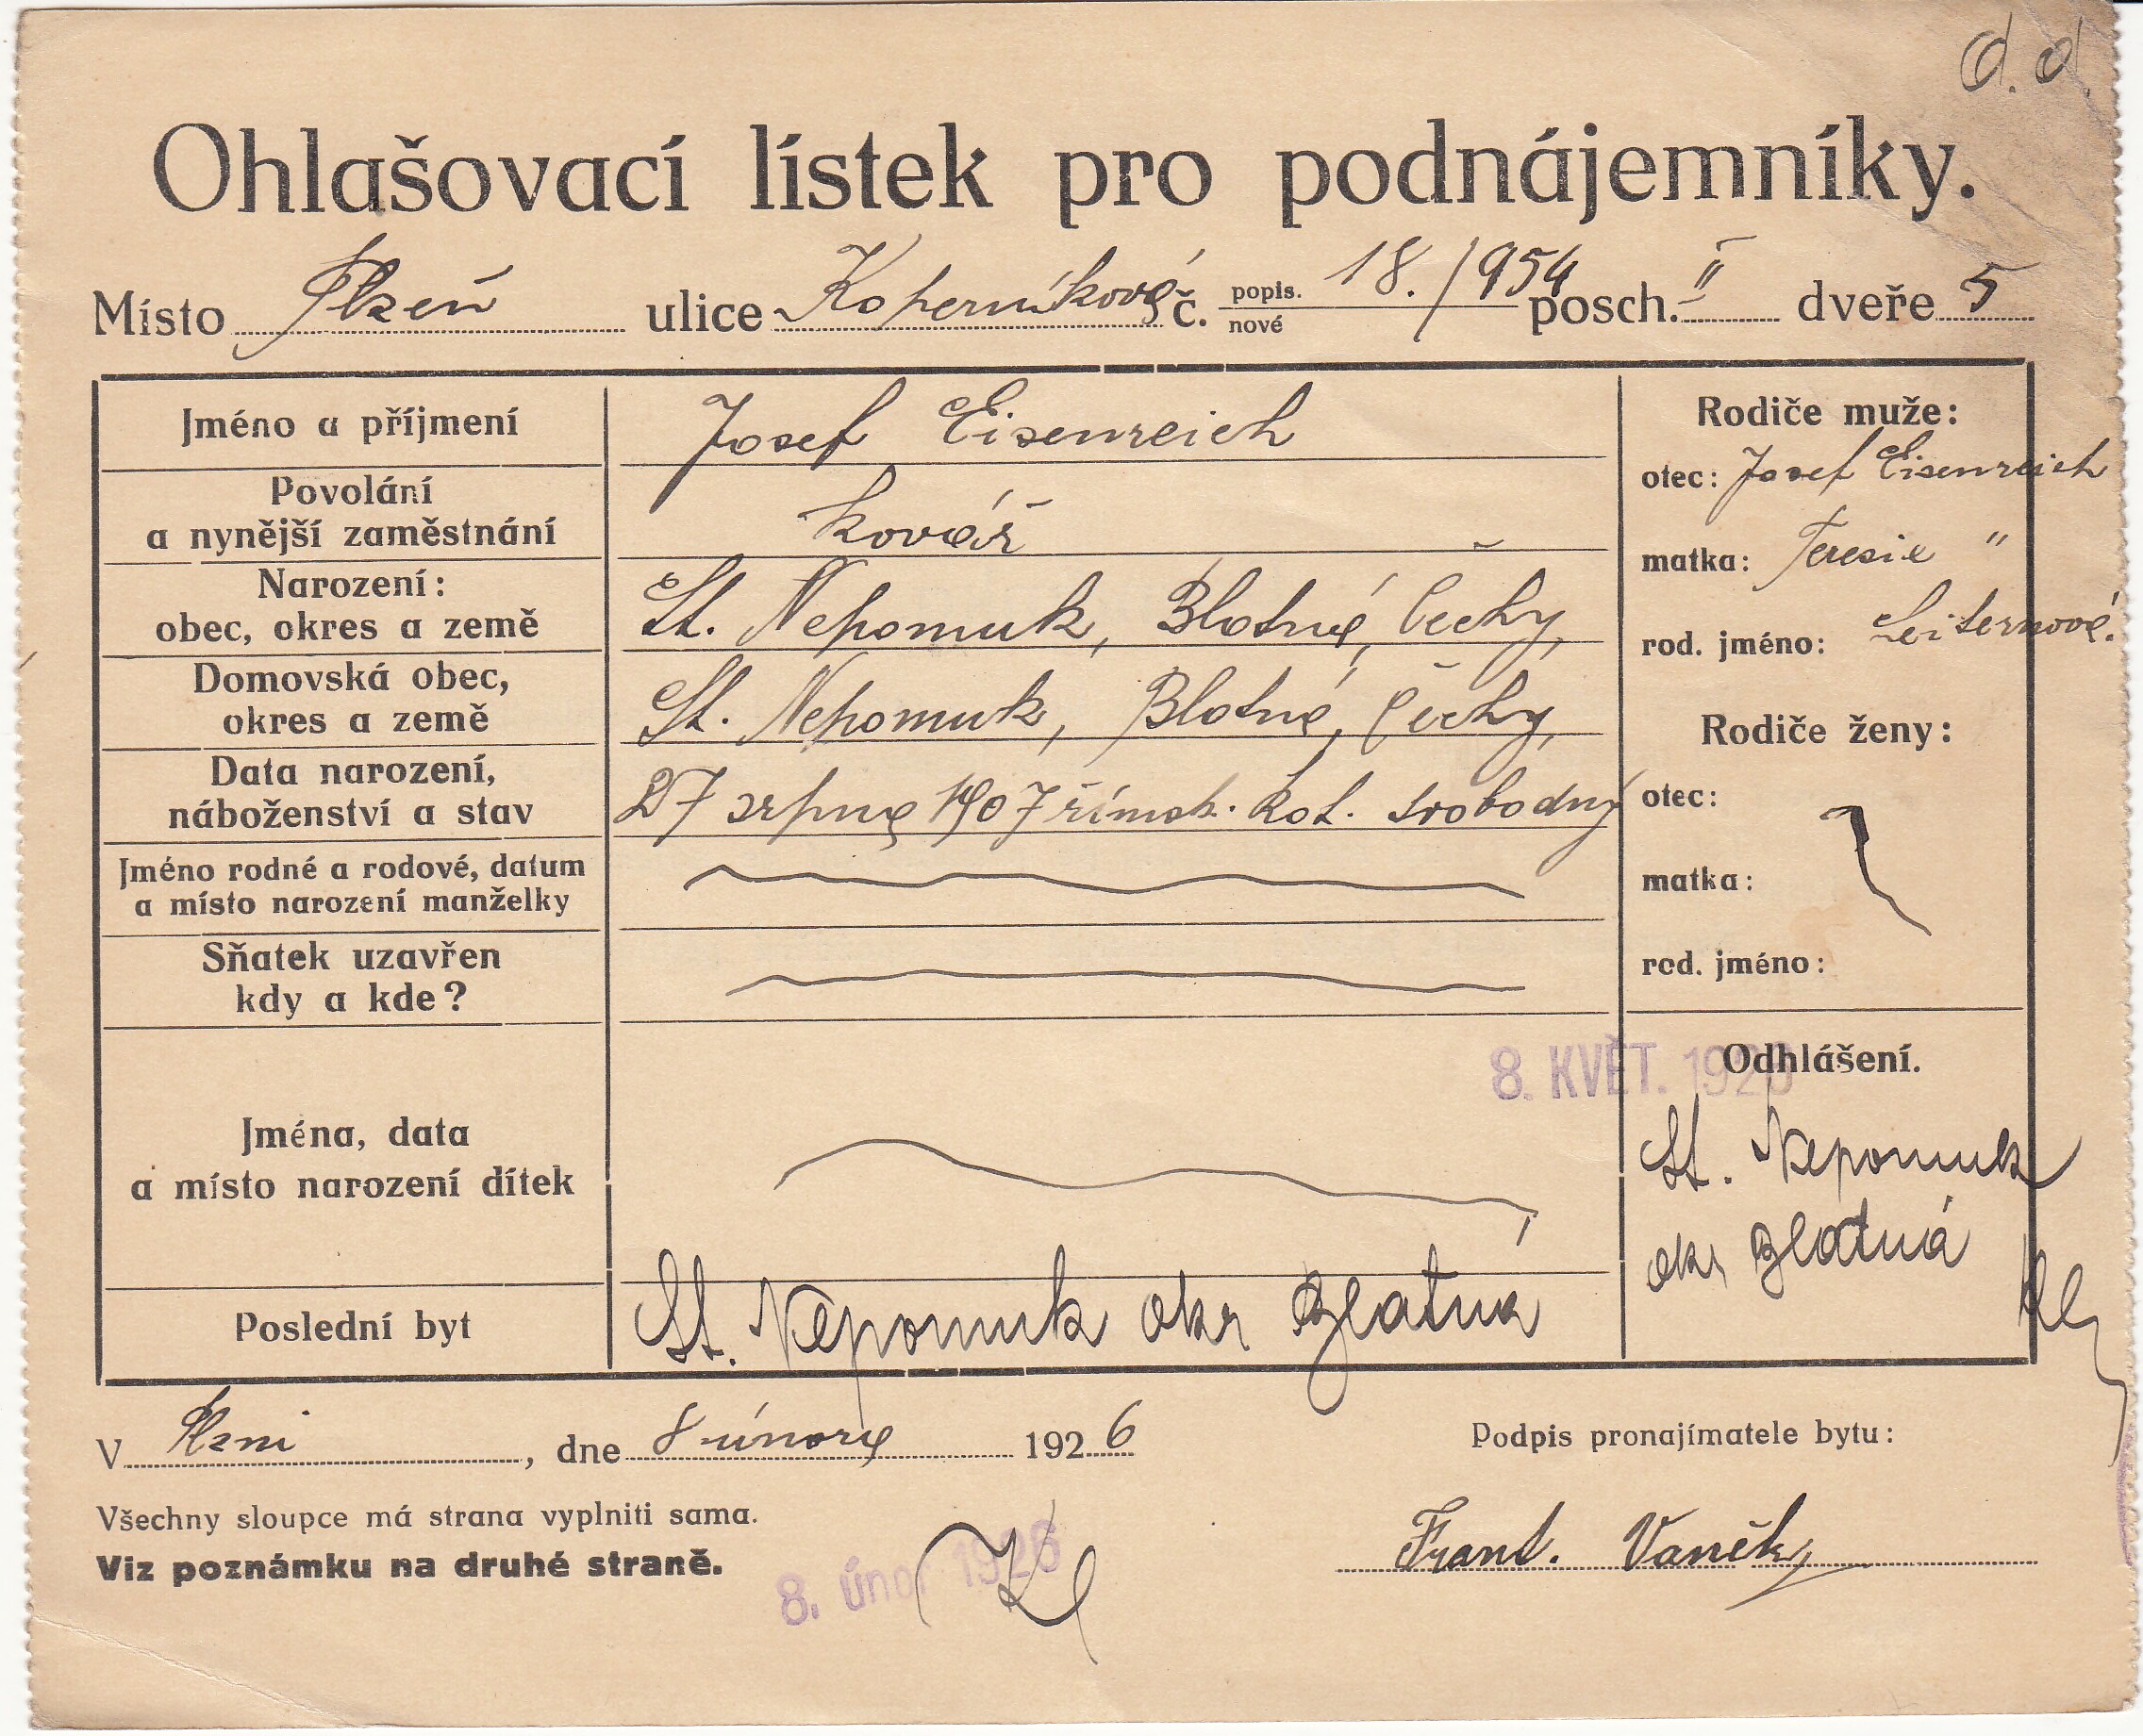 d. d.
Ohlašovací lístek pro podnájemníky.
Místo Plzeň ulice Koperníková č. popis. nové 18./954 posch. II dveře 5
Jméno a příjmení Josef Eisenreich
Povolání
a nynější zaměstnání kovář
Narození:
obec, okres a země St. Nepomuk, Blatná, Čechy,
Domovská obec,
okres a země St. Nepomuk, Blatná, Čechy,
Data narození,
náboženství a stav 27 srpna 1907 římsk. kat. svobodný
Jméno rodné a rodové, datum
a místo narození manželky
Sňatek uzavřen
kdy a kde?
Jména, data
a místo narození dítek
Poslední byt St. Nepomuk okr Blatná
Rodiče muže:
otec: Josef Eisenreich
matka: Teresie "
rod. jméno: Leiternová.
Rodiče ženy:
otec:
matka:
rod. jméno:
8. KVĚT. 1926
Odhlášení.
St. Nepomuk
okr Blatná
V Plzni, dne 8 února 1926
Podpis pronajímatele bytu:
Všechny sloupce má strana vyplniti sama.
Viz poznámku na druhé straně.
8. úno. 1926
Frant. Vaněk